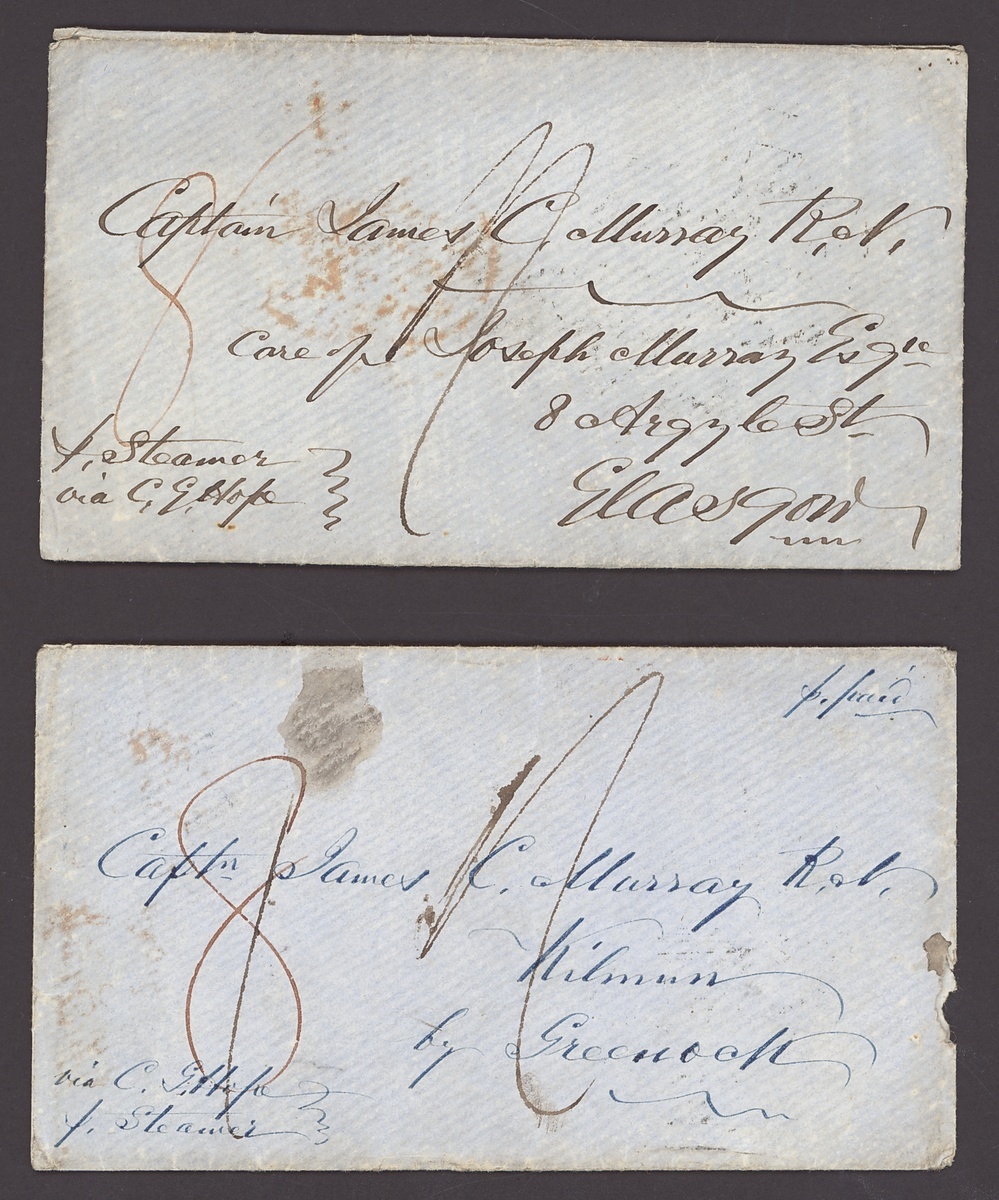 8
Captain James C. Murray R.N.
care of Joseph Murray Esqre
8 Argyle St
Glasgow
p. Steamer
via C. G. Hope
p. paid
8
Captn James C. Murray R.N.
Kilmun
by Greenock
via C. G. Hope
p. Steamer